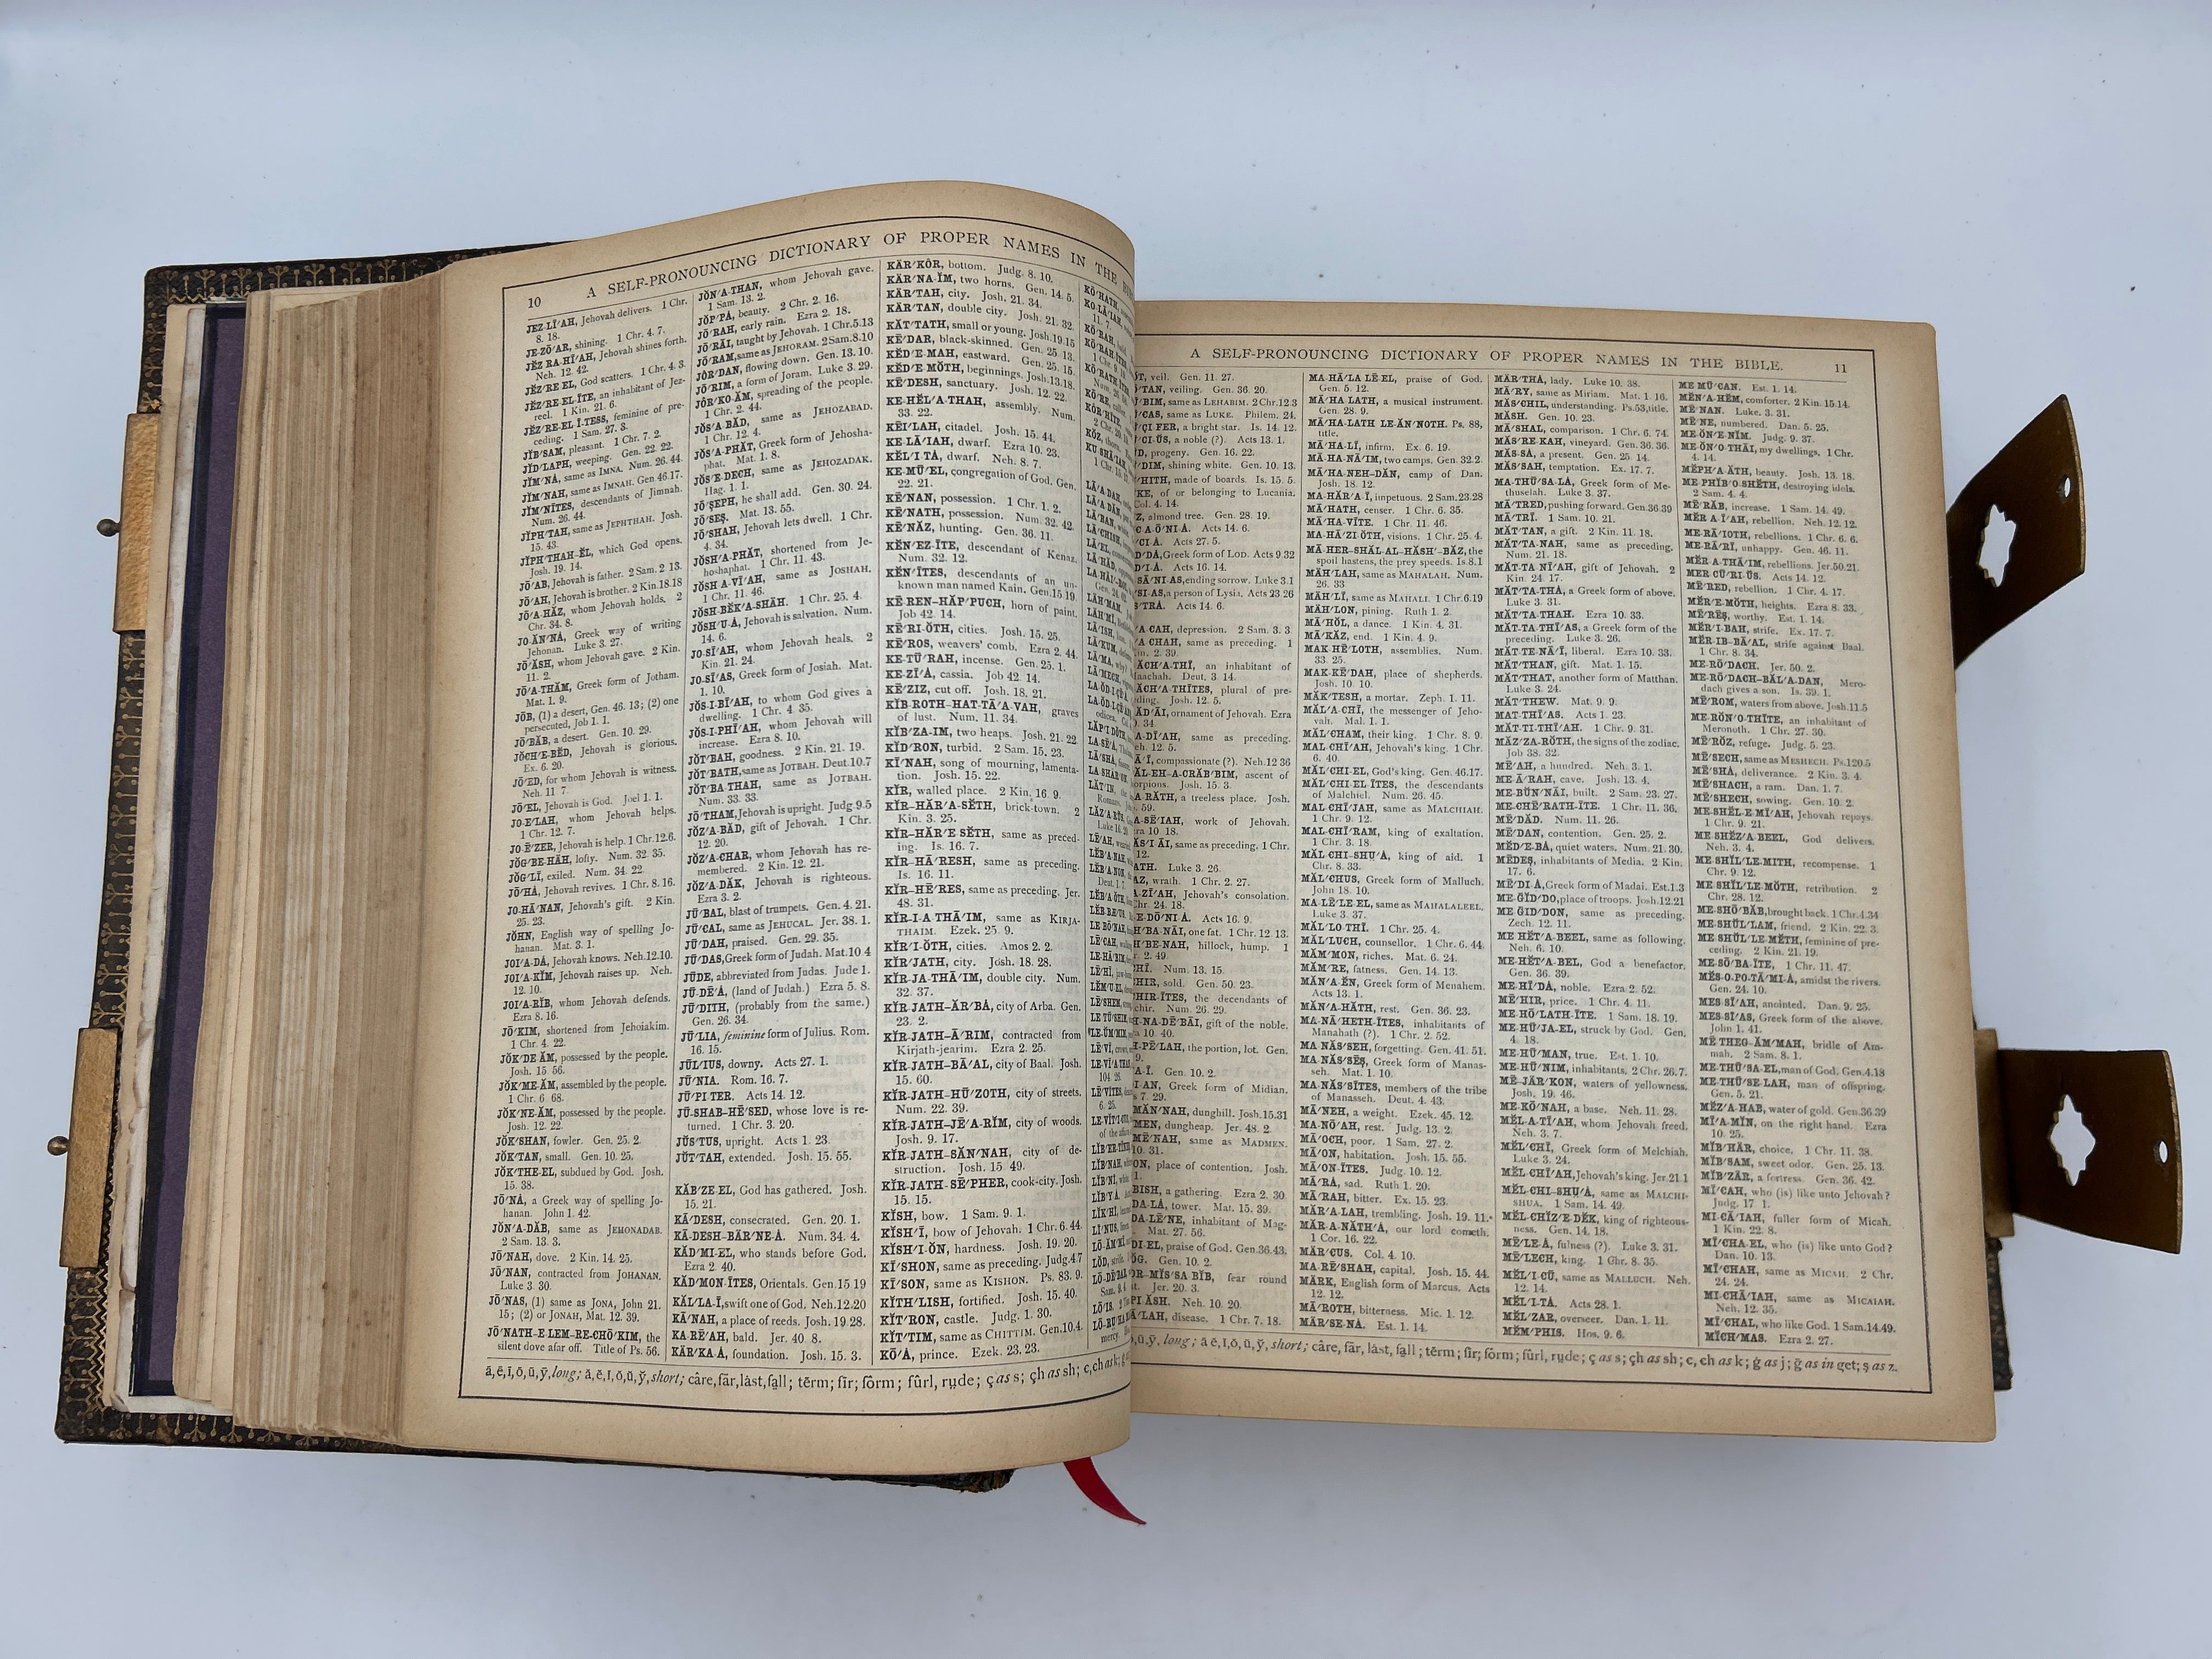 10 A SELF-PRONOUNCING DICTIONARY OF PROPER NAMES IN THE
JEZ-LĪ′AH, Jehovah delivers. 1 Chr.
8. 18.
JE-ZŌ′AR, shining. 1 Chr. 4. 7.
JĔZ-RA-HĪ′AH, Jehovah shines forth.
Neh. 12. 42.
JĔZ′RE-EL, God scatters. 1 Chr. 4. 3.
JĔZ′RE-EL-ĪTE, an inhabitant of Jez-
reel. 1 Kin. 21. 6.
JĔZ′RE-EL-Ī-TESS, feminine of pre-
ceding. 1 Sam. 27. 3.
JĬB′SAM, pleasant. 1 Chr. 7. 2.
JĬD′LAPH, weeping. Gen. 22. 22.
JĬM′NȦ, same as IMNA. Num. 26. 44.
JĬM′NAH, same as IMNAH. Gen 46.17.
JĬM′NĪTES, descendants of Jimnah.
Num. 26. 44.
JĬPH′TAH, same as JEPHTHAH. Josh.
15. 43.
JĬPH′THAH-ĔL, which God opens.
Josh. 19. 14.
JŌ′AB, Jehovah is father. 2 Sam. 2 13.
JŌ′AH, Jehovah is brother. 2 Kin.18.18
JŌ′A-HĂZ, whom Jehovah holds. 2
Chr. 34. 8.
JO-ĂN′NȦ, Greek way of writing
Jehonan. Luke 3. 27.
JŌ′ĂSH, whom Jehovah gave. 2 Kin.
11. 2.
JŌ′A-THĂM, Greek form of Jotham.
Mat. 1. 9.
JŌB, (1) a desert, Gen. 46. 13; (2) one
persecuted, Job 1. 1.
JŌ′BĂB, a desert. Gen. 10. 29.
JŎCH′E-BĔD, Jehovah is glorious.
Ex. 6. 20.
JŌ′ED, for whom Jehovah is witness.
Neh. 11 7.
JŌ′EL, Jehovah is God. Joel 1. 1.
JO-E′LAH, whom Jehovah helps.
1 Chr. 12. 7.
JO-Ē′ZER, Jehovah is help. 1 Chr.12.6.
JŎG′BE-HÄH, lofty. Num. 32. 35.
JŎG′LĪ, exiled. Num. 34. 22.
JŌ′HȦ, Jehovah revives. 1 Chr. 8. 16.
JO-HĀ′NAN, Jehovah's gift. 2 Kin.
25. 23.
JŎHN, English way of spelling Jo-
hanan. Mat. 3. 1.
JOI′A-DȦ, Jehovah knows. Neh.12.10.
JOI′A-KĬM, Jehovah raises up. Neh.
12. 10.
JOI′A-RĬB, whom Jehovah defends.
Ezra 8. 16.
JŌ′KIM, shortened from Jehoiakim.
1 Chr. 4. 22.
JŎK′DE-ĂM, possessed by the people.
Josh. 15. 56.
JŎK′ME-ĂM, assembled by the people.
1 Chr. 6 68.
JŎK′NE-ĂM, possessed by the people.
Josh. 12. 22.
JŎK′SHAN, fowler. Gen. 25. 2.
JŎK′TAN, small. Gen. 10. 25.
JŎK′THE-EL, subdued by God. Josh.
15. 38.
JŌ′NȦ, a Greek way of spelling Jo-
hanan. John 1. 42.
JŎN′A-DĂB, same as JEHONADAB.
2 Sam. 13. 3.
JŌ′NAH, dove. 2 Kin. 14. 25.
JŌ′NAN, contracted from JOHANAN.
Luke 3. 30.
JŌ′NAS, (1) same as JONA, John 21.
15; (2) or JONAH, Mat. 12. 39.
JŌ′NATH-E-LEM-RE-CHŌ′KIM, the
silent dove afar off. Title of Ps. 56.
JŎN′A-THAN, whom Jehovah gave.
1 Sam. 13. 2.
JŎP′PȦ, beauty. 2 Chr. 2. 16.
JŌ′RAH, early rain. Ezra 2. 18.
JŌ′RĀI, taught by Jehovah. 1 Chr.5.13
JŌ′RAM, same as JEHORAM. 2Sam.8.10
JÔR′DAN, flowing down. Gen. 13. 10.
JŌ′RIM, a form of Joram. Luke 3. 29.
JÔR′KO-ĂM, spreading of the people.
1 Chr. 2. 44.
JŎS′A-BĂD, same as JEHOZABAD.
1 Chr. 12. 4.
JŎS′A-PHĂT, Greek form of Jehosha-
phat. Mat. 1. 8.
JŎS′E-DECH, same as JEHOZADAK.
Hag. 1. 1.
JŌ′ṢEPH, he shall add. Gen. 30. 24.
JŌ′SEṢ. Mat. 13. 55.
JŌ′SHAH, Jehovah lets dwell. 1 Chr.
4. 34.
JŎSH′A-PHĂT, shortened from Je-
hoshaphat. 1 Chr. 11. 43.
JŎSH-A-VĪ′AH, same as JOSHAH.
1 Chr. 11. 46.
JŎSH-BĔK′A-SHĂH. 1 Chr. 25. 4.
JŎSH′U-Ȧ, Jehovah is salvation. Num.
14. 6.
JO-SĪ′AH, whom Jehovah heals. 2
Kin. 21. 24.
JO-SĪ′AS, Greek form of Josiah. Mat.
1. 10.
JŎS-I-BĪ′AH, to whom God gives a
dwelling. 1 Chr. 4. 35.
JŎS-I-PHĪ′AH, whom Jehovah will
increase. Ezra 8. 10.
JŎT′BAH, goodness. 2 Kin. 21. 19.
JŎT′BATH, same as JOTBAH. Deut.10.7
JŎT′BA-THAH, same as JOTBAH.
Num. 33. 33.
JŌ′THAM, Jehovah is upright. Judg.9.5
JŎZ′A-BĂD, gift of Jehovah. 1 Chr.
12. 20.
JŎZ′A-CHAR, whom Jehovah has re-
membered. 2 Kin. 12. 21.
JŎZ′A-DĂK, Jehovah is righteous.
Ezra 3. 2.
JŪ′BAL, blast of trumpets. Gen. 4. 21.
JŪ′CAL, same as JEHUCAL. Jer. 38. 1.
JŪ′DAH, praised. Gen. 29. 35.
JŪ′DAS, Greek form of Judah. Mat.10 4
JŪDE, abbreviated from Judas. Jude 1.
JŪ-DĒ′Ȧ, (land of Judah.) Ezra 5. 8.
JŪ′DITH, (probably from the same.)
Gen. 26. 34.
JŪ′LIA, feminine form of Julius. Rom.
16. 15.
JŪL′IUS, downy. Acts 27. 1.
JŪ′NIA. Rom. 16. 7.
JŪ′PI-TER. Acts 14. 12.
JŪ-SHAB-HĒ′SED, whose love is re-
turned. 1 Chr. 3. 20.
JŬS′TUS, upright. Acts 1. 23.
JŬT′TAH, extended. Josh. 15. 55.
KĂB′ZE-EL, God has gathered. Josh.
15. 21.
KĀ′DESH, consecrated. Gen. 20. 1.
KĀ-DESH-BÄR′NE-Ȧ. Num. 34. 4.
KĂD′MI-EL, who stands before God.
Ezra 2. 40.
KĂD′MON-ĪTES, Orientals. Gen.15 19
KĂL′LA-Ī, swift one of God. Neh.12.20
KĀ′NAH, a place of reeds. Josh. 19.28.
KA-RĒ′AH, bald. Jer. 40 8.
KÄR′KA-Ȧ, foundation. Josh. 15. 3.
KÄR′KÔR, bottom. Judg. 8. 10.
KÄR′NA-ĬM, two horns. Gen. 14. 5.
KÄR′TAH, city. Josh. 21. 34.
KÄR′TAN, double city. Josh. 21. 32.
KĂT′TATH, small or young. Josh.19.15
KĒ′DAR, black-skinned. Gen. 25. 13.
KĔD′E-MAH, eastward. Gen. 25. 15.
KĔD′E-MŎTH, beginnings. Josh.13.18.
KĒ′DESH, sanctuary. Josh. 12. 22.
KE-HĔL′A-THAH, assembly. Num.
33. 22.
KĒI′LAH, citadel. Josh. 15. 44.
KE-LĀ′IAH, dwarf. Ezra 10. 23.
KĔL′I-TȦ, dwarf. Neh. 8. 7.
KE-MŪ′EL, congregation of God. Gen.
22. 21.
KĒ′NAN, possession. 1 Chr. 1. 2.
KĒ′NATH, possession. Num. 32. 42.
KĒ′NĂZ, hunting. Gen. 36. 11.
KĔN′EZ-ĪTE, descendant of Kenaz.
Num. 32. 12.
KĔN′ĪTES, descendants of an un-
known man named Kain. Gen.15 19.
KĒ-REN-HĂP′PUCH, horn of paint.
Job 42. 14.
KĒ′RI-ŎTH, cities. Josh. 15. 25.
KĒ′ROS, weavers' comb. Ezra 2. 44.
KE-TŪ′RAH, incense. Gen. 25. 1.
KE-ZĪ′Ȧ, cassia. Job 42. 14.
KĒ′ZIZ, cut off. Josh. 18. 21.
KĬB-ROTH-HAT-TĀ′A-VAH, graves
of lust. Num. 11. 34.
KĬB′ZA-IM, two heaps. Josh. 21. 22.
KĬD′RON, turbid. 2 Sam. 15. 23.
KĪ′NAH, song of mourning, lamenta-
tion. Josh. 15. 22.
KĬR, walled place. 2 Kin. 16. 9.
KĬR-HĂR′A-SĔTH, brick-town. 2
Kin. 3. 25.
KĬR-HĂR′E SĔTH, same as preced-
ing. Is. 16. 7.
KĬR-HĀ′RESH, same as preceding.
Is. 16. 11.
KĬR-HĒ′RES, same as preceding. Jer.
48. 31.
KĬR-I-A-THĀ′IM, same as KIRJA-
THAIM. Ezek. 25. 9.
KĬR′I-ŎTH, cities. Amos 2. 2.
KĬR′JATH, city. Josh. 18. 28.
KĬR-JA-THĀ′IM, double city. Num.
32. 37.
KĬR-JATH-ÄR′BȦ, city of Arba. Gen.
23. 2.
KĬR-JATH-Ā′RIM, contracted from
Kirjath-jearim. Ezra 2. 25.
KĬR-JATH-BĀ′AL, city of Baal. Josh.
15. 60.
KĬR-JATH-HŪ′ZOTH, city of streets.
Num. 22. 39.
KĬR-JATH-JĒ′A-RĬM, city of woods.
Josh. 9. 17.
KĬR-JATH-SĂN′NAH, city of de-
struction. Josh. 15. 49.
KĬR-JATH-SĒ′PHER, cook-city. Josh.
15. 15.
KĬSH, bow. 1 Sam. 9. 1.
KĬSH′Ī, bow of Jehovah. 1 Chr. 6. 44.
KĬSH′I-ŎN, hardness. Josh. 19. 20.
KĪ′SHON, same as preceding. Judg.4.7
KĪ′SON, same as KISHON. Ps. 83. 9.
KĬTH′LISH, fortified. Josh. 15. 40.
KĬT′RON, castle. Judg. 1. 30.
KĬT′TIM, same as CHITTIM. Gen.10.4.
KŌ′Ȧ, prince. Ezek. 23. 23.
KŌ′HATH,
KO-LĀ′IAH,
11. 7.
KŌ′RAH,
LĒ′AH,
LĒ′VĪ,
LĒ′VĪTES,
ā, ē, ī, ō, ū, ȳ, long; ă, ĕ, ĭ, ŏ, ŭ, y̆, short; câre, fär, làst, fạll; tẽrm; fĩr; fôrm; fûrl, rụde; ç as s; çh as sh; c, ch as k;
A SELF-PRONOUNCING DICTIONARY OF PROPER NAMES IN THE BIBLE. 11
veil. Gen. 11. 27.
veiling. Gen. 36. 20.
same as LEHABIM. 2Chr.12.3
same as LUKE. Philem. 24.
a bright star. Is. 14. 12.
a noble (?). Acts 13. 1.
progeny. Gen. 16. 22.
shining white. Gen. 10. 13.
made of boards. Is. 15. 5.
of or belonging to Lucania.
Col. 4. 14.
almond tree. Gen. 28. 19.
Acts 14. 6.
Acts 27. 5.
Greek form of LOD. Acts 9 32
Acts 16. 14.
ending sorrow. Luke 3.1
a person of Lysia. Acts 23 26
Acts 14. 6.
depression. 2 Sam. 3. 3.
same as preceding. 1
2. 39.
an inhabitant of
Maachah. Deut. 3 14.
plural of pre-
Josh. 12. 5.
ornament of Jehovah. Ezra
34.
same as preceding.
12. 5.
compassionate (?). Neh. 12 36
ascent of
scorpions. Josh. 15. 3.
a treeless place. Josh.
59.
work of Jehovah.
Ezra 10 18.
same as preceding. 1 Chr.
12.
Luke 3. 26.
wrath. 1 Chr. 2. 27.
Jehovah's consolation.
Chr. 24. 18.
Acts 16. 9.
one fat. 1 Chr. 12. 13.
hillock, hump. 1
2. 49
Num. 13. 15.
sold. Gen. 50. 23.
the decendants of
Num. 26. 29.
gift of the noble.
10. 40.
the portion, lot. Gen.
9.
Gen. 10. 2.
Greek form of Midian.
7. 29.
dunghill. Josh.15.31
dungheap. Jer. 48. 2.
same as MADMEN.
10. 31.
place of contention. Josh.
1.
a gathering. Ezra 2. 30.
tower. Mat. 15. 39.
inhabitant of Mag-
Mat. 27. 56.
praise of God. Gen.36.43.
Gen. 10. 2.
fear round
Jer. 20. 3.
Neh. 10. 20.
disease. 1 Chr. 7. 18.
MA-HĀ′LA-LĒ-EL, praise of God.
Gen. 5. 12.
MĀ′HA-LATH, a musical instrument.
Gen. 28. 9.
MĀ′HA-LATH LE-ĂN′NOTH. Ps. 88,
title.
MĀ′HA-LĪ, infirm. Ex. 6. 19.
MĀ-HA-NĀ′IM, two camps. Gen. 32.2.
MĀ′HA-NEH-DĂN, camp of Dan.
Josh. 18. 12.
MA-HĂR′A-Ī, impetuous. 2 Sam.23.28
MĀ′HATH, censer. 1 Chr. 6. 35.
MĀ′HA-VĪTE. 1 Chr. 11. 46.
MA-HĀ′ZI-ŎTH, visions. 1 Chr. 25. 4.
MĀ-HER-SHĂL-AL-HĂSH′-BĂZ, the
spoil hastens, the prey speeds. Is.8.1
MÄH′LAH, same as MAHALAH. Num.
26. 33
MÄH′LĪ, same as MAHALI. 1 Chr.6.19
MÄH′LON, pining. Ruth 1. 2.
MĀ′HŎL, a dance. 1 Kin. 4. 31.
MĀ′KĂZ, end. 1 Kin. 4. 9.
MAK-HĒ′LOTH, assemblies. Num.
33. 25.
MAK-KĒ′DAH, place of shepherds.
Josh. 10. 10.
MĂK′TESH, a mortar. Zeph. 1. 11.
MĂL′A-CHĪ, the messenger of Jeho-
vah. Mal. 1. 1.
MĂL′CHAM, their king. 1 Chr. 8. 9.
MAL-CHĪ′AH, Jehovah's king. 1 Chr.
6. 40.
MĂL′CHI-EL, God's king. Gen. 46.17.
MĂL′CHI-EL-ĪTES, the descendants
of Malchiel. Num. 26. 45.
MAL-CHĪ′JAH, same as MALCHIAH.
1 Chr. 9. 12.
MAL-CHĪ′RAM, king of exaltation.
1 Chr. 3. 18.
MĂL-CHI-SHỤ′Ȧ, king of aid. 1
Chr. 8. 33.
MĂL′CHUS, Greek form of Malluch.
John 18. 10.
MA-LĒ′LE-EL, same as MAHALALEEL.
Luke 3. 37.
MĂL′LO-THĪ. 1 Chr. 25. 4.
MĂL′LUCH, counsellor. 1 Chr. 6. 44.
MĂM′MON, riches. Mat. 6. 24.
MĂM′RE, fatness. Gen. 14. 13.
MĂN′A-ĔN, Greek form of Menahem.
Acts 13. 1.
MĂN′A-HĂTH, rest. Gen. 36. 23.
MA-NĀ′HETH-ĪTES, inhabitants of
Manahath (?). 1 Chr. 2. 52.
MA-NĂS′SEH, forgetting. Gen. 41. 51.
MA-NĂS′SĒṢ, Greek form of Manas-
seh. Mat. 1. 10.
MA-NĂS′SĪTES, members of the tribe
of Manasseh. Deut. 4. 43.
MĀ′NEH, a weight. Ezek. 45. 12.
MA-NŌ′AH, rest. Judg. 13. 2.
MĀ′OCH, poor. 1 Sam. 27. 2.
MĀ′ON, habitation. Josh. 15. 55.
MĀ′ON-ĪTES. Judg. 10. 12.
MĀ′RȦ, sad. Ruth 1. 20.
MĀ′RAH, bitter. Ex. 15. 23.
MĂR′A-LAH, trembling. Josh. 19. 11.
MĂR-A-NĂTH′Ȧ, our lord cometh.
1 Cor. 16. 22.
MÄR′CUS. Col. 4. 10.
MA-RĒ′SHAH, capital. Josh. 15. 44.
MÄRK, English form of Marcus. Acts
12. 12.
MĀ′ROTH, bitterness. Mic. 1. 12.
MÄR′SE-NȦ. Est. 1. 14.
MÄR′THȦ, lady. Luke 10. 38.
MĀ′RY, same as Miriam. Mat. 1. 16.
MĂS′CHIL, understanding. Ps.53,title.
MĂSH. Gen. 10. 23.
MĀ′SHAL, comparison. 1 Chr. 6. 74.
MĂS′RE-KAH, vineyard. Gen. 36. 36.
MĂS-SȦ, a present. Gen. 25. 14.
MĂS′SAH, temptation. Ex. 17. 7.
MA-THŪ′SA-LȦ, Greek form of Me-
thuselah. Luke 3. 37.
MĀ′TRED, pushing forward. Gen.36.39
MĀ′TRĪ. 1 Sam. 10. 21.
MĂT′TAN, a gift. 2 Kin. 11. 18.
MĂT′TA-NAH, same as preceding.
Num. 21. 18.
MĂT-TA-NĪ′AH, gift of Jehovah. 2
Kin. 24. 17.
MĂT′TA-THȦ, a Greek form of above.
Luke 3. 31.
MĂT′TA-THAH. Ezra 10. 33.
MĂT-TA-THĪ′AS, a Greek form of the
preceding. Luke 3. 26.
MĂT-TE-NĀ′Ī, liberal. Ezra 10. 33.
MĂT′THAN, gift. Mat. 1. 15.
MĂT′THAT, another form of Matthan.
Luke 3. 24.
MĂT′THEW. Mat. 9. 9.
MAT-THĪ′AS. Acts 1. 23.
MĂT-TI-THĪ′AH. 1 Chr. 9. 31.
MĂZ′ZA-RŎTH, the signs of the zodiac.
Job 38. 32.
MĒ′AH, a hundred. Neh. 3. 1.
ME-Ā′RAH, cave. Josh. 13. 4.
ME-BŬN′NĀI, built. 2 Sam. 23. 27.
ME-CHĒ′RATH-ĪTE. 1 Chr. 11. 36.
MĒ′DĂD. Num. 11. 26.
MĒ′DAN, contention. Gen. 25. 2.
MĔD′E-BȦ, quiet waters. Num. 21. 30.
MĒDEṢ, inhabitants of Media. 2 Kin.
17. 6.
MĒ′DI-Ȧ, Greek form of Madai. Est.1.3
ME-GĬD′DO, place of troops. Josh.12.21
ME GĬD′DON, same as preceding.
Zech. 12. 11.
ME-HĔT′A-BEEL, same as following.
Neh. 6. 10.
ME-HĔT′A-BEL, God a benefactor.
Gen. 36. 39.
ME-HĪ′DȦ, noble. Ezra 2. 52.
MĒ′HIR, price. 1 Chr. 4. 11.
ME-HŌ′LATH-ĪTE. 1 Sam. 18. 19.
ME-HŪ′JA-EL, struck by God. Gen.
4. 18.
ME-HŪ′MAN, true. Est. 1. 10.
ME-HŪ′NIM, inhabitants. 2 Chr. 26.7.
ME-JÄR′KON, waters of yellowness.
Josh. 19. 46.
ME-KŌ′NAH, a base. Neh. 11. 28.
MĔL-A-TĪ′AH, whom Jehovah freed.
Neh. 3. 7.
MĔL′CHĪ, Greek form of Melchiah.
Luke 3. 24.
MĔL-CHĪ′AH, Jehovah's king. Jer.21 1
MĔL-CHI-SHỤ′Ȧ, same as MALCHI-
SHUA. 1 Sam. 14. 49.
MĔL-CHĬZ′E-DĔK, king of righteous-
ness. Gen. 14. 18.
MĒ′LE-Ȧ, fulness (?). Luke 3. 31.
MĒ′LECH, king. 1 Chr. 8. 35.
MĔL′I-CŪ, same as MALLUCH. Neh.
12. 14.
MĔL′I-TȦ. Acts 28. 1.
MĔL′ZAR, overseer. Dan. 1. 11.
MĔM′PHIS. Hos. 9. 6.
ME-MŪ′CAN. Est. 1. 14.
MĔN′A-HĔM, comforter. 2 Kin. 15.14.
MĒ′NAN. Luke 3. 31.
MĒ′NE, numbered. Dan. 5. 25.
ME-ŎN′E-NĬM. Judg. 9. 37.
ME-ŎN′O-THĀI, my dwellings. 1 Chr.
4. 14.
MĔPH′A-ĂTH, beauty. Josh. 13. 18.
ME-PHĬB′O-SHĔTH, destroying idols.
2 Sam. 4. 4.
MĒ′RĂB, increase. 1 Sam. 14. 49.
MĔR-A-Ī′AH, rebellion. Neh. 12. 12.
ME-RĀ′IOTH, rebellions. 1 Chr. 6. 6.
ME-RĀ′RĪ, unhappy. Gen. 46. 11.
MĔR-A-THĀ′IM, rebellions. Jer.50.21.
MER-CŪ′RI-ŬS. Acts 14. 12.
MĒ′RED, rebellion. 1 Chr. 4. 17.
MĔR′E-MŎTH, heights. Ezra 8. 33.
MĒ′RĒṢ, worthy. Est. 1. 14.
MĔR′I-BAH, strife. Ex. 17. 7.
MĔR-IB-BĀ′AL, strife against Baal.
1 Chr. 8. 34.
ME-RŌ′DACH. Jer. 50. 2.
ME-RŌ′DACH-BĂL′A-DAN, Mero-
dach gives a son. Is. 39. 1.
MĒ′ROM, waters from above. Josh.11.5
ME-RŎN′O-THĪTE, an inhabitant of
Meronoth. 1 Chr. 27. 30.
MĒ′RŎZ, refuge. Judg. 5. 23.
MĒ′SECH, same as MESHECH. Ps.120.5
MĒ′SHȦ, deliverance. 2 Kin. 3. 4.
MĒ′SHACH, a ram. Dan. 1. 7.
MĒ′SHECH, sowing. Gen. 10. 2.
ME-SHĔL-E-MĪ′AH, Jehovah repays.
1 Chr. 9. 21.
ME SHĔZ′A-BEEL, God delivers.
Neh. 3. 4.
ME-SHĬL′LE-MITH, recompense. 1
Chr. 9. 12.
ME-SHĬL′LE-MŎTH, retribution. 2
Chr. 28. 12.
ME-SHŌ′BĂB, brought back. 1 Chr.4.34
ME-SHŬL′LAM, friend. 2 Kin. 22. 3.
ME-SHŬL′LE-MĔTH, feminine of pre-
ceding. 2 Kin. 21. 19.
ME-SŌ′BA-ĪTE, 1 Chr. 11. 47.
MĔS-O-PO-TĀ′MI-Ȧ, amidst the rivers.
Gen. 24. 10.
MES-SĪ′AH, anointed. Dan. 9. 25.
MES-SĪ′AS, Greek form of the above.
John 1. 41.
MĒ-THEG-ĂM′MAH, bridle of Am-
mah. 2 Sam. 8. 1.
ME-THŪ′SA-EL, man of God. Gen.4.18
ME-THŪ′SE-LAH, man of offspring.
Gen. 5. 21.
MĔZ′A-HAB, water of gold. Gen.36.39
MĪ′A-MĬN, on the right hand. Ezra
10. 25.
MĬB′HÄR, choice. 1 Chr. 11. 38.
MĬB′SAM, sweet odor. Gen. 25. 13.
MĬB′ZÄR, a fortress. Gen. 36. 42.
MĪ′CAH, who (is) like unto Jehovah?
Judg. 17 1.
MI-CĀ′IAH, fuller form of Micah.
1 Kin. 22. 8.
MĪ′CHA-EL, who (is) like unto God?
Dan. 10. 13.
MĪ′CHAH, same as MICAH. 2 Chr.
24. 24.
MI-CHĀ′IAH, same as MICAIAH.
Neh. 12. 35.
MĪ′CHAL, who like God. 1 Sam.14.49.
MĬCH′MAS. Ezra 2. 27.
ū, ȳ, long; ă, ĕ, ĭ, ŏ, ŭ, y̆, short; câre, fär, làst, fạll; tẽrm; fĩr; fôrm; fûrl, rụde; ç as s; çh as sh; c, ch as k; ġ as j; ḡ as in get; ṣ as z.